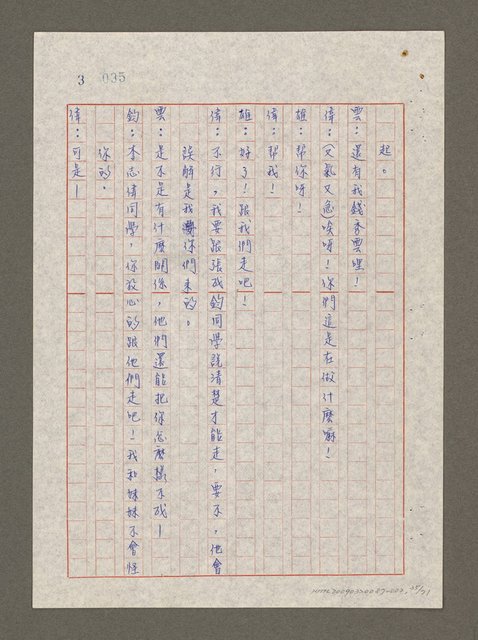 3 035
起。
雲：還有我錢秀雲哩！
偉：(又氣又急)唉呀！你們這是在做什麼嘛！
雄：幫你呀！
偉：幫我！
雄：好了！跟我們走吧！
偉：不行，我要跟張成鈞同學說清楚才能走，要不，他會
誤解是我你們來的。
雲：是不是有什麼關係，他們還能把你怎麼樣不成—
鈞：李志偉同學，你放心的跟他們走吧！我和妹妹不會怪
你的。
偉：可是—